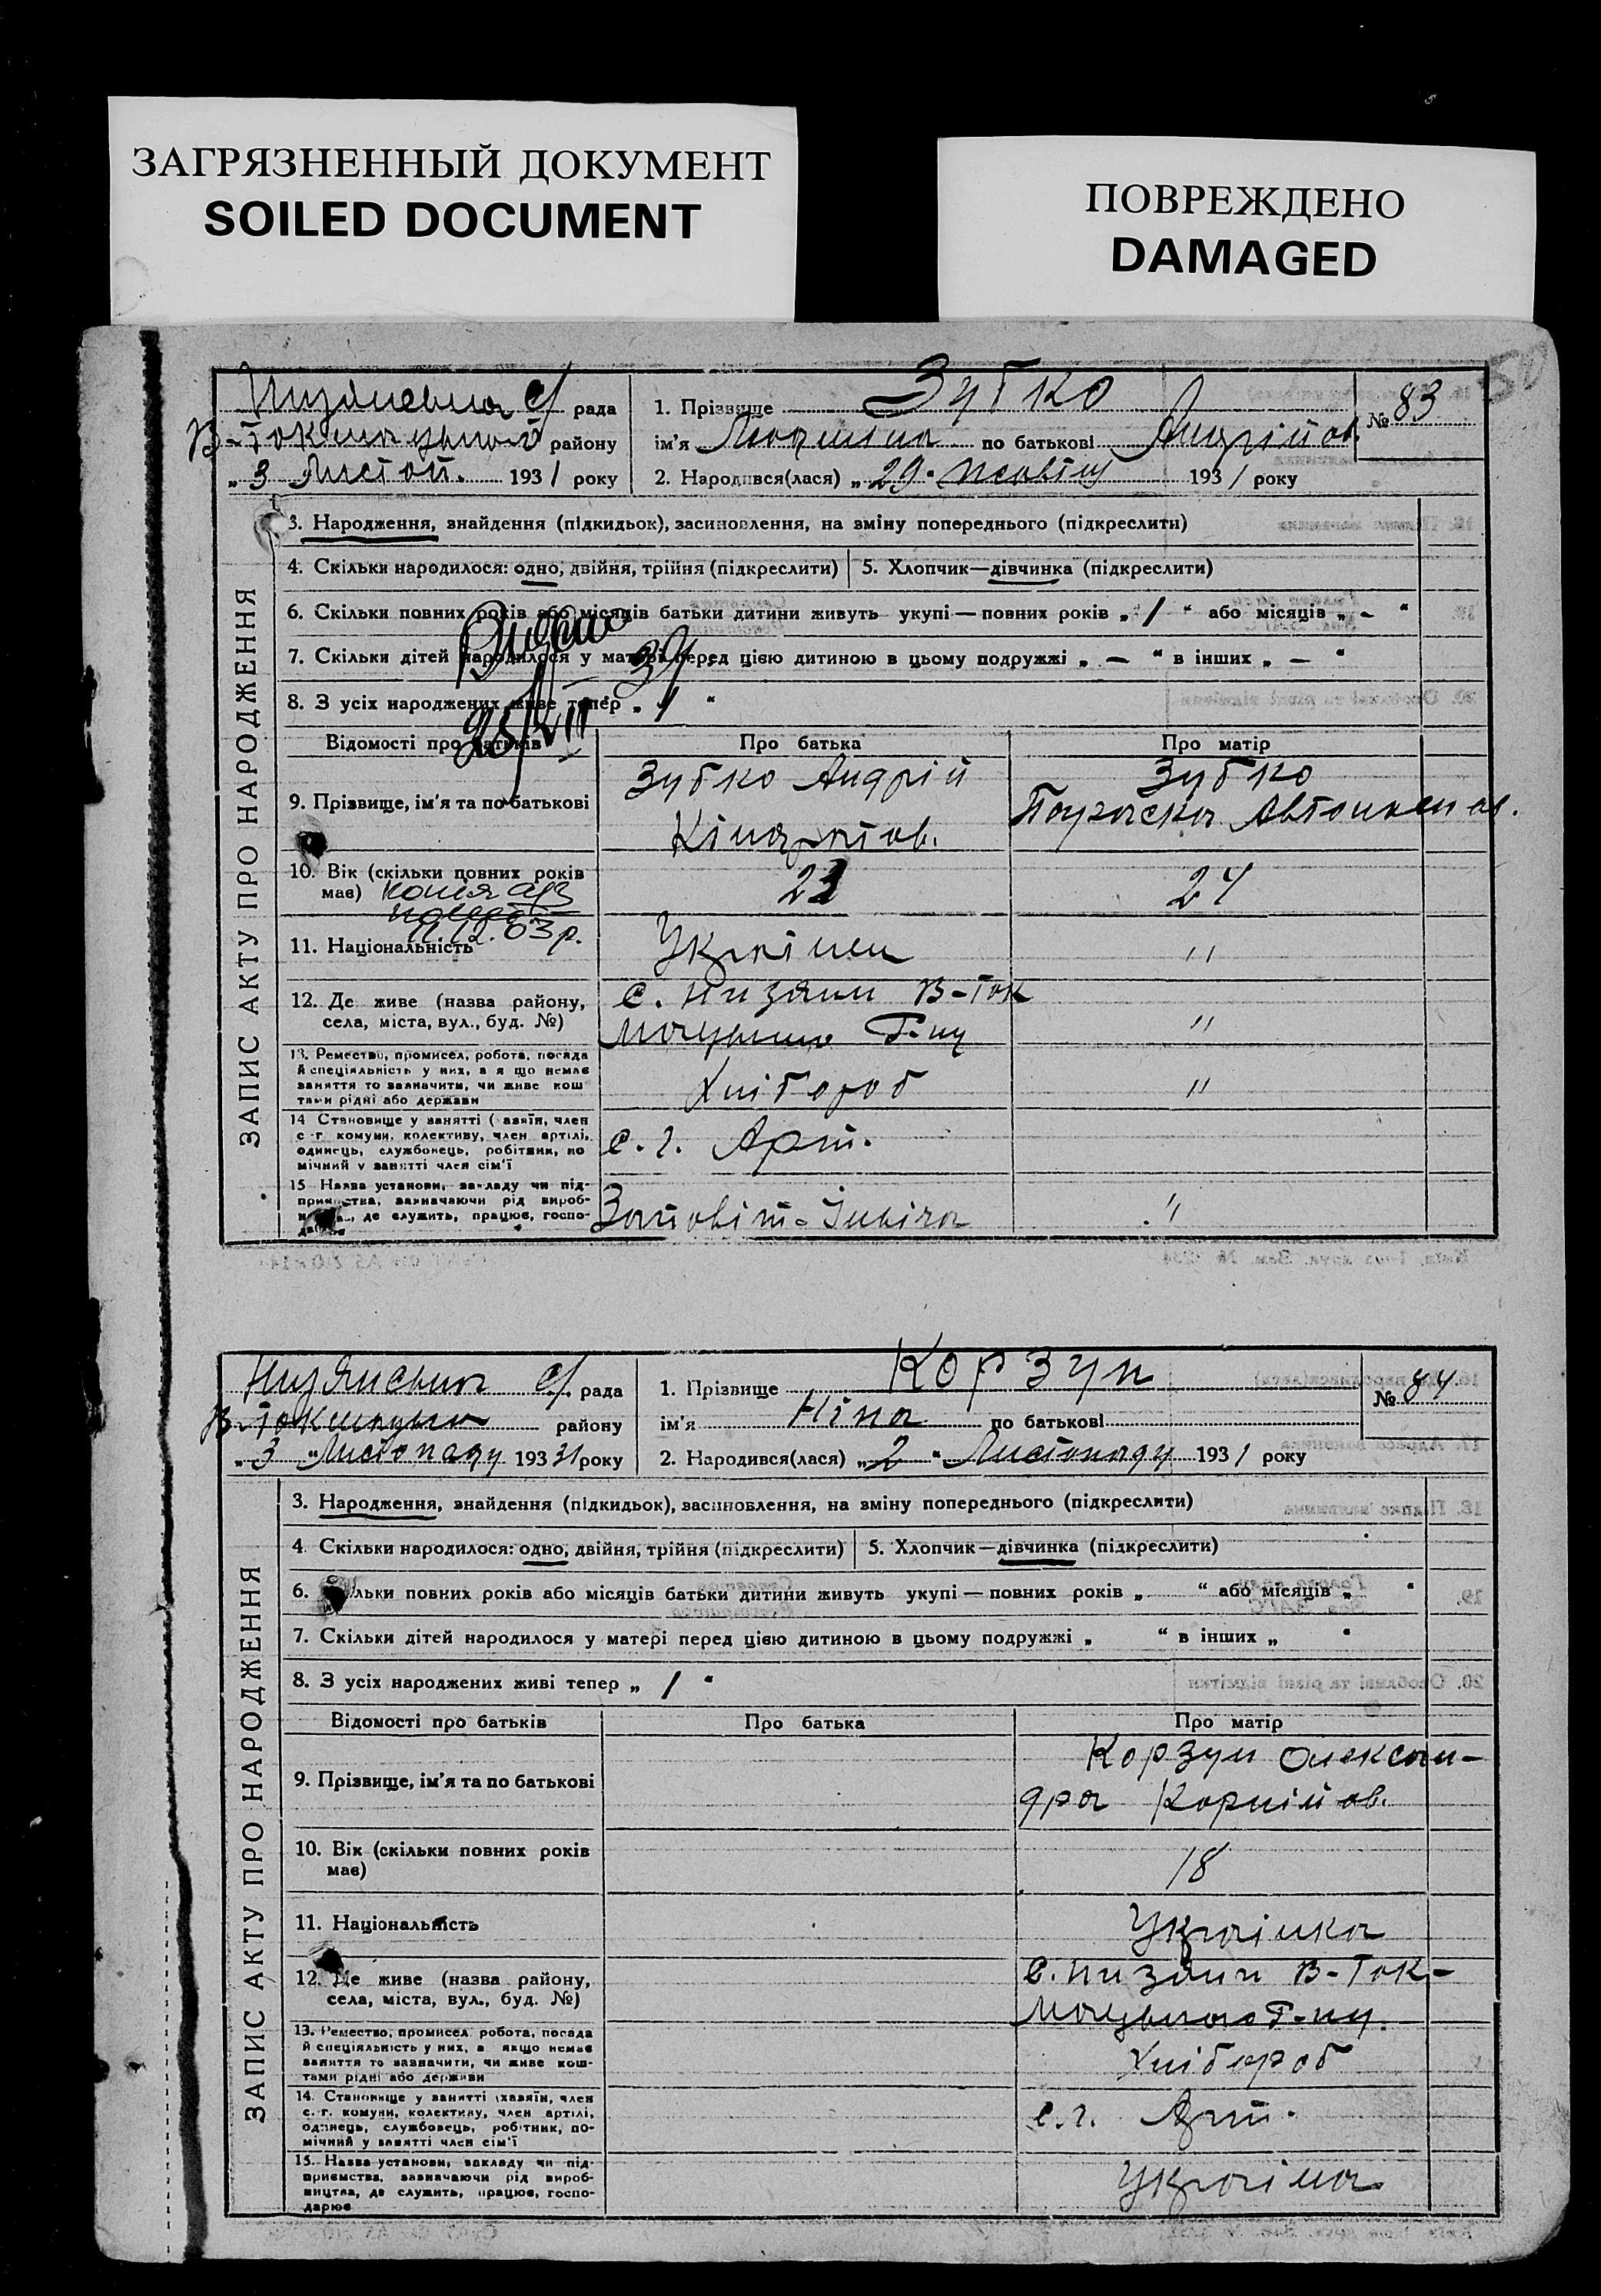 ЗАГРЯЗНЕННЫЙ ДОКУМЕНТ
SOILED DOCUMENT
ПОВРЕЖДЕНО
DAMAGED
ЗАПИС АКТУ ПРО НАРОДЖЕННЯ
с/ рада
району
„3 Листоп. 1931 року
1. Прізвище Зубко
№ 83
ім'я по батькові Андрійов.
2. Народився(лася) „29. Жовтня 1931 року
3. Народження, знайдення (підкидьок), засиновлення, на зміну попереднього (підкреслити)
4. Скільки народилося: одно, двійня, трійня (підкреслити) 5. Хлопчик—дівчинка (підкреслити)
6. Скільки повних років або місяців батьки дитини живуть укупі — повних років „ 1 “ або місяців „ – “
7. Скільки дітей народилося у матері перед цією дитиною в цьому подружжі „ — “ в інших „ — “
8. З усіх народжених живе тепер „ 1 “
Відомості про батьків Про батька Про матір
9. Прізвище, ім'я та по батькові Зубко Андрій Кіндратов. Зубко Параска Автономов.
10. Вік (скільки повних років має) 24
копія
11.12.03 р.
11. Національність Українец "
12. Де живе (назва району, села, міста, вул., буд. №) с. Низяни В-Ток мацьким Р-ну "
13. Ремество, промисел, робота, посада й спеціяльність у них, а я що немає заняття то зазначити, чи живе кош тами рідні або держави Хлібороб "
14 Становище у занятті (хазяїн, член с-г. комуни, колективу, член артілі, одинець, службовець, робітник, по мічний у занятті член сім'ї с. г. Арт.
15 Назва установи, закладу чи під- приємства, зазначаючи рід вироб- де служить, працює, госпо- Заповіт-Ілліча "
ЗАПИС АКТУ ПРО НАРОДЖЕННЯ
с/ рада
району
„3 „Листопаду 193 31 року
1. Прізвище Корзун
№ 84
ім'я Ніна по батькові
2. Народився(лася) „2 “ Листопаду 1931 року
3. Народження, знайдення (підкидьок), засиновлення, на зміну попереднього (підкреслити)
4 Скільки народилося: одно, двійня, трійня (підкреслити) 5. Хлопчик—дівчинка (підкреслити)
6. Скільки повних років або місяців батьки дитини живуть укупі — повних років „ “ або місяців „ “
7. Скільки дітей народилося у матері перед цією дитиною в цьому подружжі „ “ в інших „ “
8. З усіх народжених живі тепер „ 1 “
Відомості про батьків Про батька Про матір
9. Прізвище, ім'я та по батькові Корзун Олексан- дра Корнійов.
10. Вік (скільки повних років має) 18
11. Національність Українка
12. Де живе (назва району, села, міста, вул., буд. №) с. Низяни В-Ток- Р-ну.
13. Ремество, промисел робота, посада й спеціяльність у них, а якщо немає заняття то зазначити, чи живе кош- тами рідні або держави Хлібороб
14. Становище у занятті (хазяїн, член с.-г. комуни, колективу, член артілі, одинець, службовець, робітник, по- мічний у занятті член сім'ї с. г. Арт.
15. Назва установи, закладу чи під- приємства, зазначаючи рід вироб- ництва, де служить, працює, госпо- дарює Україна